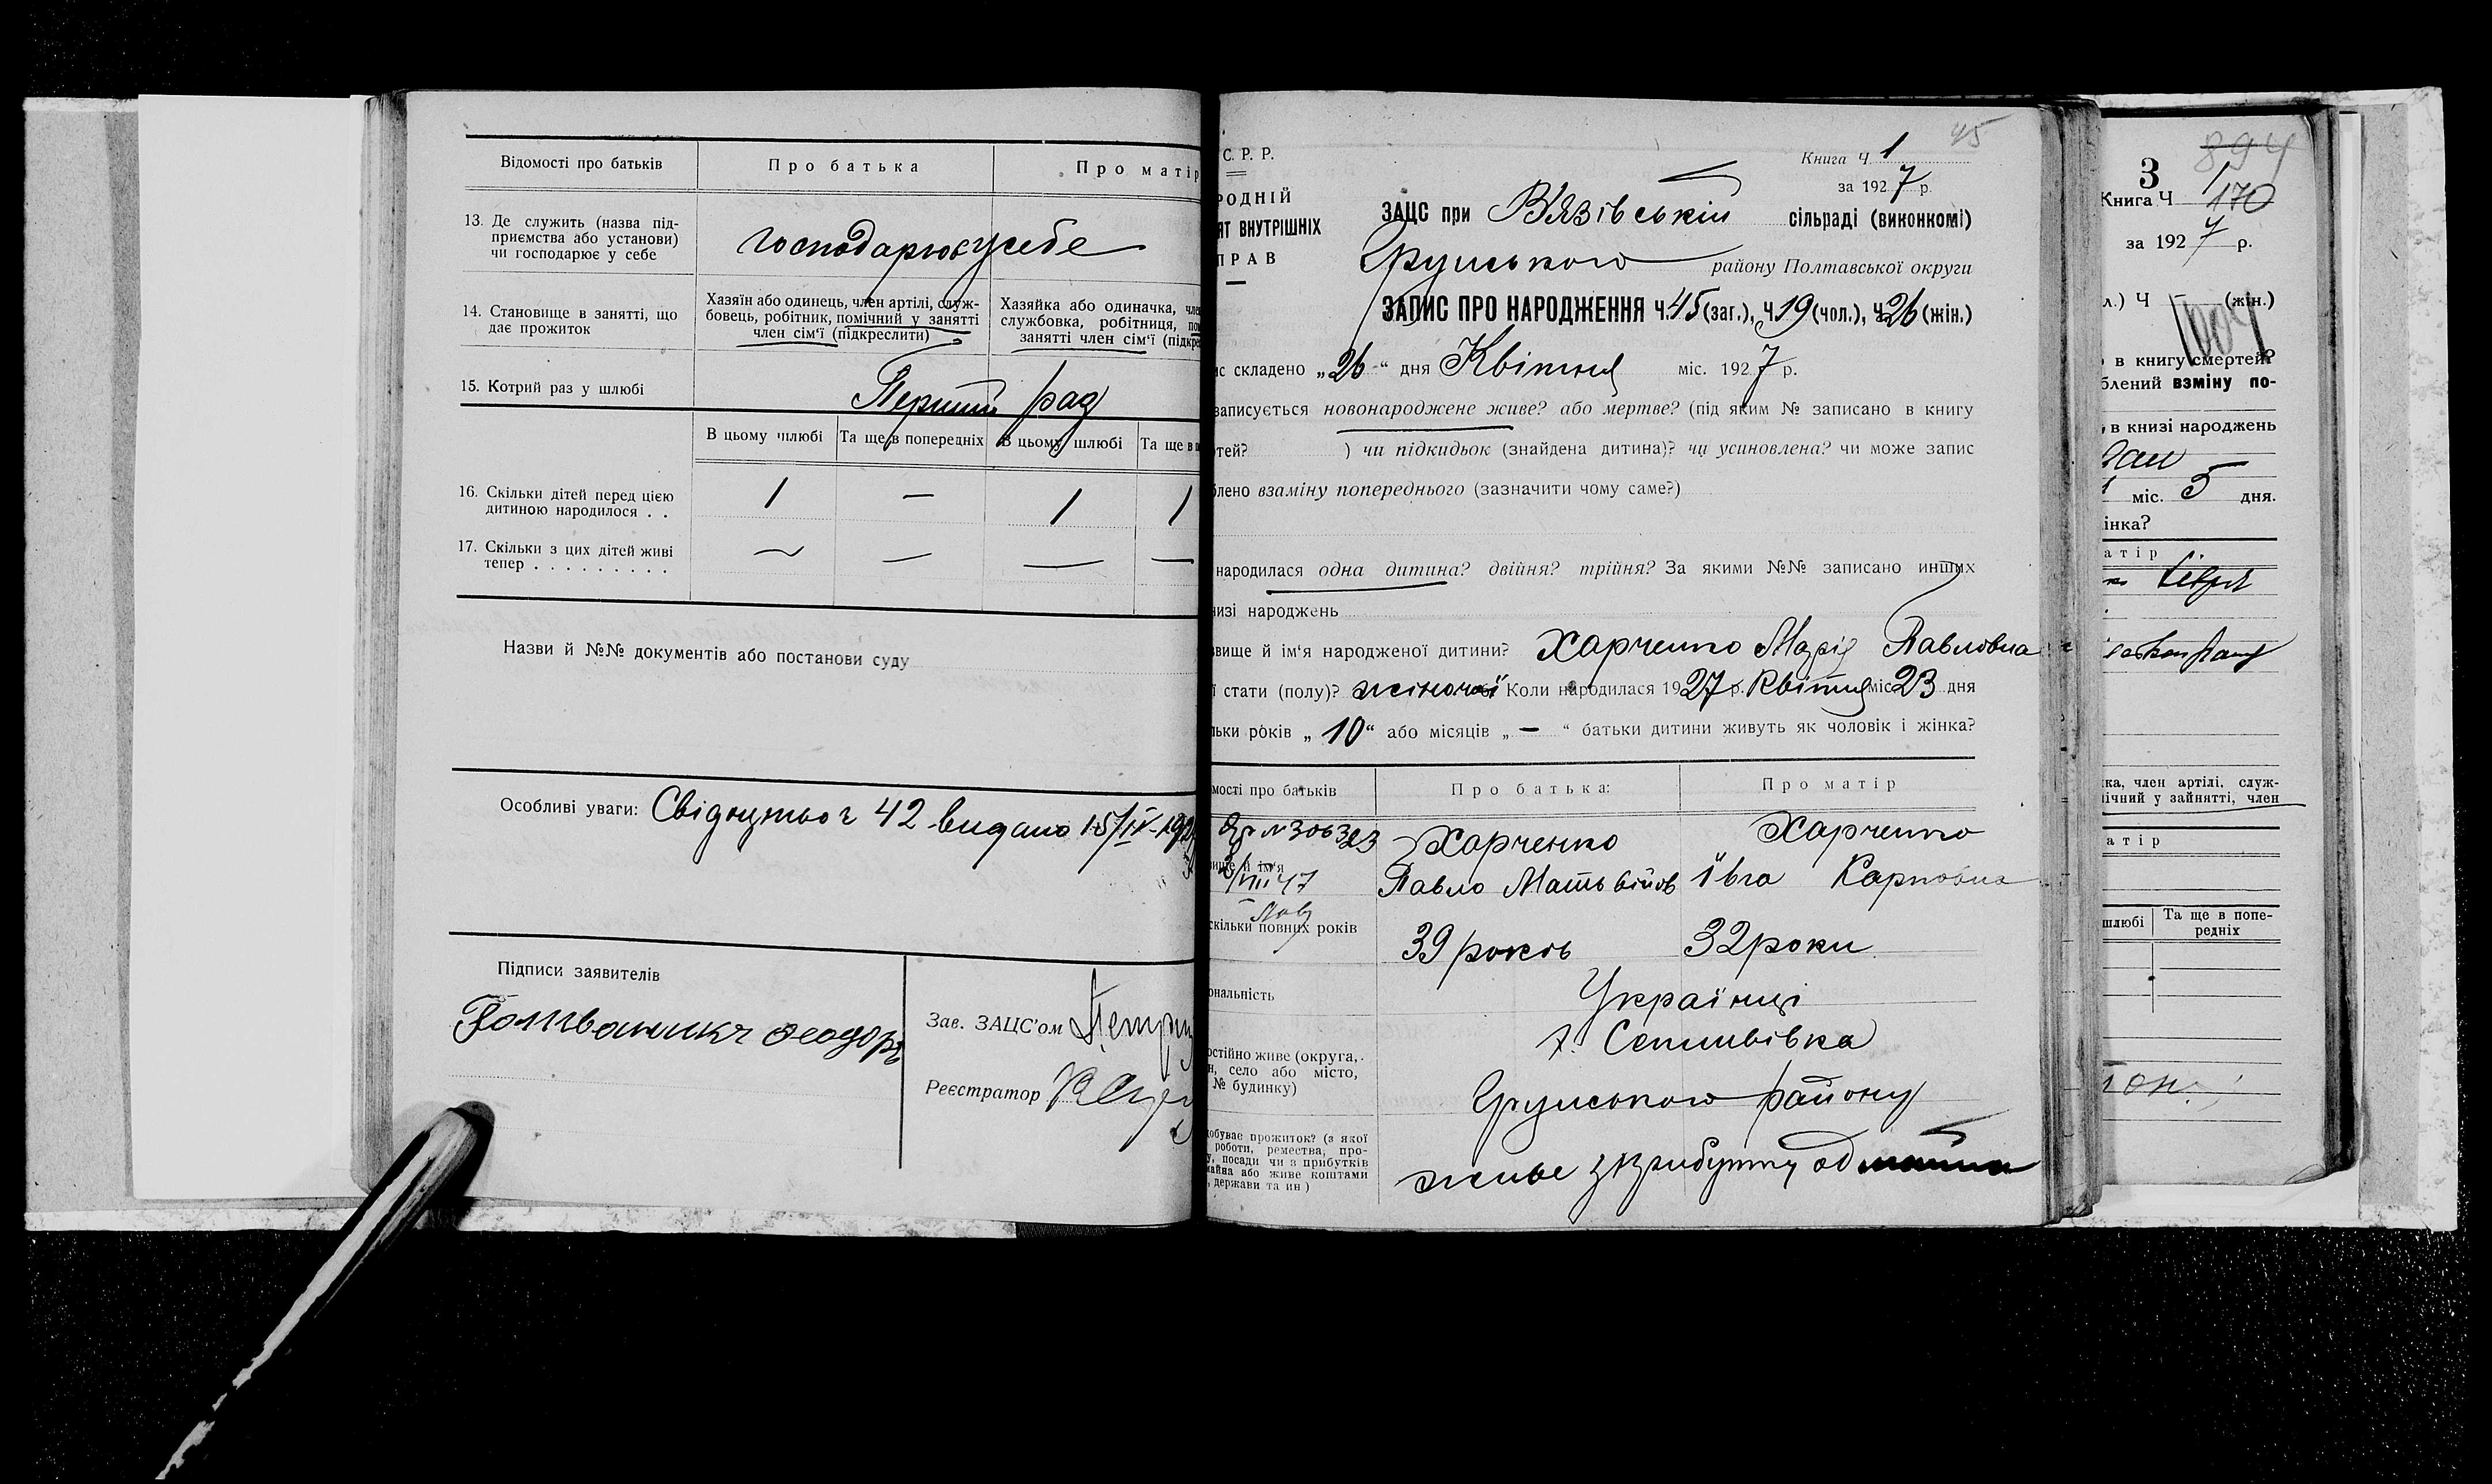 Відомості про батьків
Про батька
Про матір
13. Де служить (назва під-
приємства або установи)
чи господарює у себе
господарює у себе
14. Становище в занятті, що
дає прожиток
Хазяїн або одинець, член артілі, служ-
бовець, робітник, помічний у занятті
член сім'ї (підкреслити)
Хазяйка або одиначка, чле
службовка, робітниця, по
занятті член сім'ї (підкре
15. Котрий раз у шлюбі
Перший раз
В цьому шлюбі
Та ще в попередніх
В цьому шлюбі
Та ще в п
16. Скільки дітей перед цією
дитиною народилося . .
1 — 1 1
17. Скільки з цих дітей живі
тепер . . . . . . . . .
— — — —
Назви й №№ документів або постанови суду
Особливі уваги: Свідоцтво ч 42 видано 15/IV-192
Підписи заявителів
Зав. ЗАЦС'ом
Реєстратор
45
С. Р. Р.
РОДНІЙ
ЯТ ВНУТРІШНІХ
ПРАВ
Книга Ч. 1
за 1927 р.
ЗАЦС при Вязівській сільраді (виконкомі)
Грунського району Полтавської округи
ЗАПИС ПРО НАРОДЖЕННЯ Ч. 45 (заг.), Ч 19 (чол.), Ч. 26 (жін.)
ис складено „26“ дня Квітня міс. 1927 р.
записується новонароджене живе? або мертве? (під яким № записано в книгу
ртей? ) чи підкидьок (знайдена дитина)? чи усиновлена? чи може запис
блено взаміну попереднього (зазначити чому саме?)
народилася одна дитина? двійня? трійня? За якими №№ записано инших
низі народжень
звище й ім'я народженої дитини? Харченко Марія Павловна
ї стати (полу)? жіночої Коли народилася 1927 р. Квітня міс 23 дня
льки років „10“ або місяців „—“ батьки дитини живуть як чоловік і жінка?
мості про батьків
Про батька:
Про матір
№ 306323
вище й ім'я
3/VIII 47
Харченко
Павло Матьвійов
Харченко
Івга Карповна
скільки повних років
39 років
32 роки
ональність
Українці
остійно живе (округа,
н, село або місто,
№ будинку)
х.
Грунського району
добуває прожиток? (з якої
роботи, ремества, про-
у, посади чи з прибутків
майна або живе коштами
, держави та ин)
живе з прибутку од
3
894
Книга Ч 1
170
за 1927 р.
л.) Ч (жін.)
о в книгу смертей?
блений взміну по-
в книзі народжень
міс. 5 дня.
інка?
атір
ка, член артілі, служ-
ічний у зайнятті, член
атір
шлюбі
Та ще в попе-
редніх